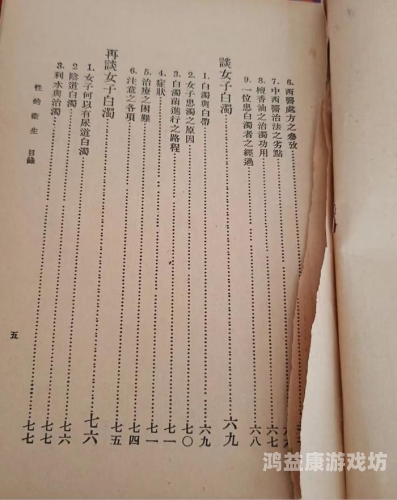 6. 西醫處方之參攷
7. 中西醫治法之劣點……六
8. 檀香油之治濁功用……六七
9. 一位患白濁者之經過……六八
談女子白濁……六九
1. 白濁與白帶……六九
2. 女子患濁之原因……七〇
3. 白濁菌進行之路程……七一
4. 症狀……七一
5. 治療之困難……七四
6. 注意之各項……七五
再談女子白濁……七六
1. 女子何以有尿道白濁……七六
2. 陰道白濁……七七
3. 利水與治濁……七七
性的衛生 目錄
五
鸿益康游戏坊